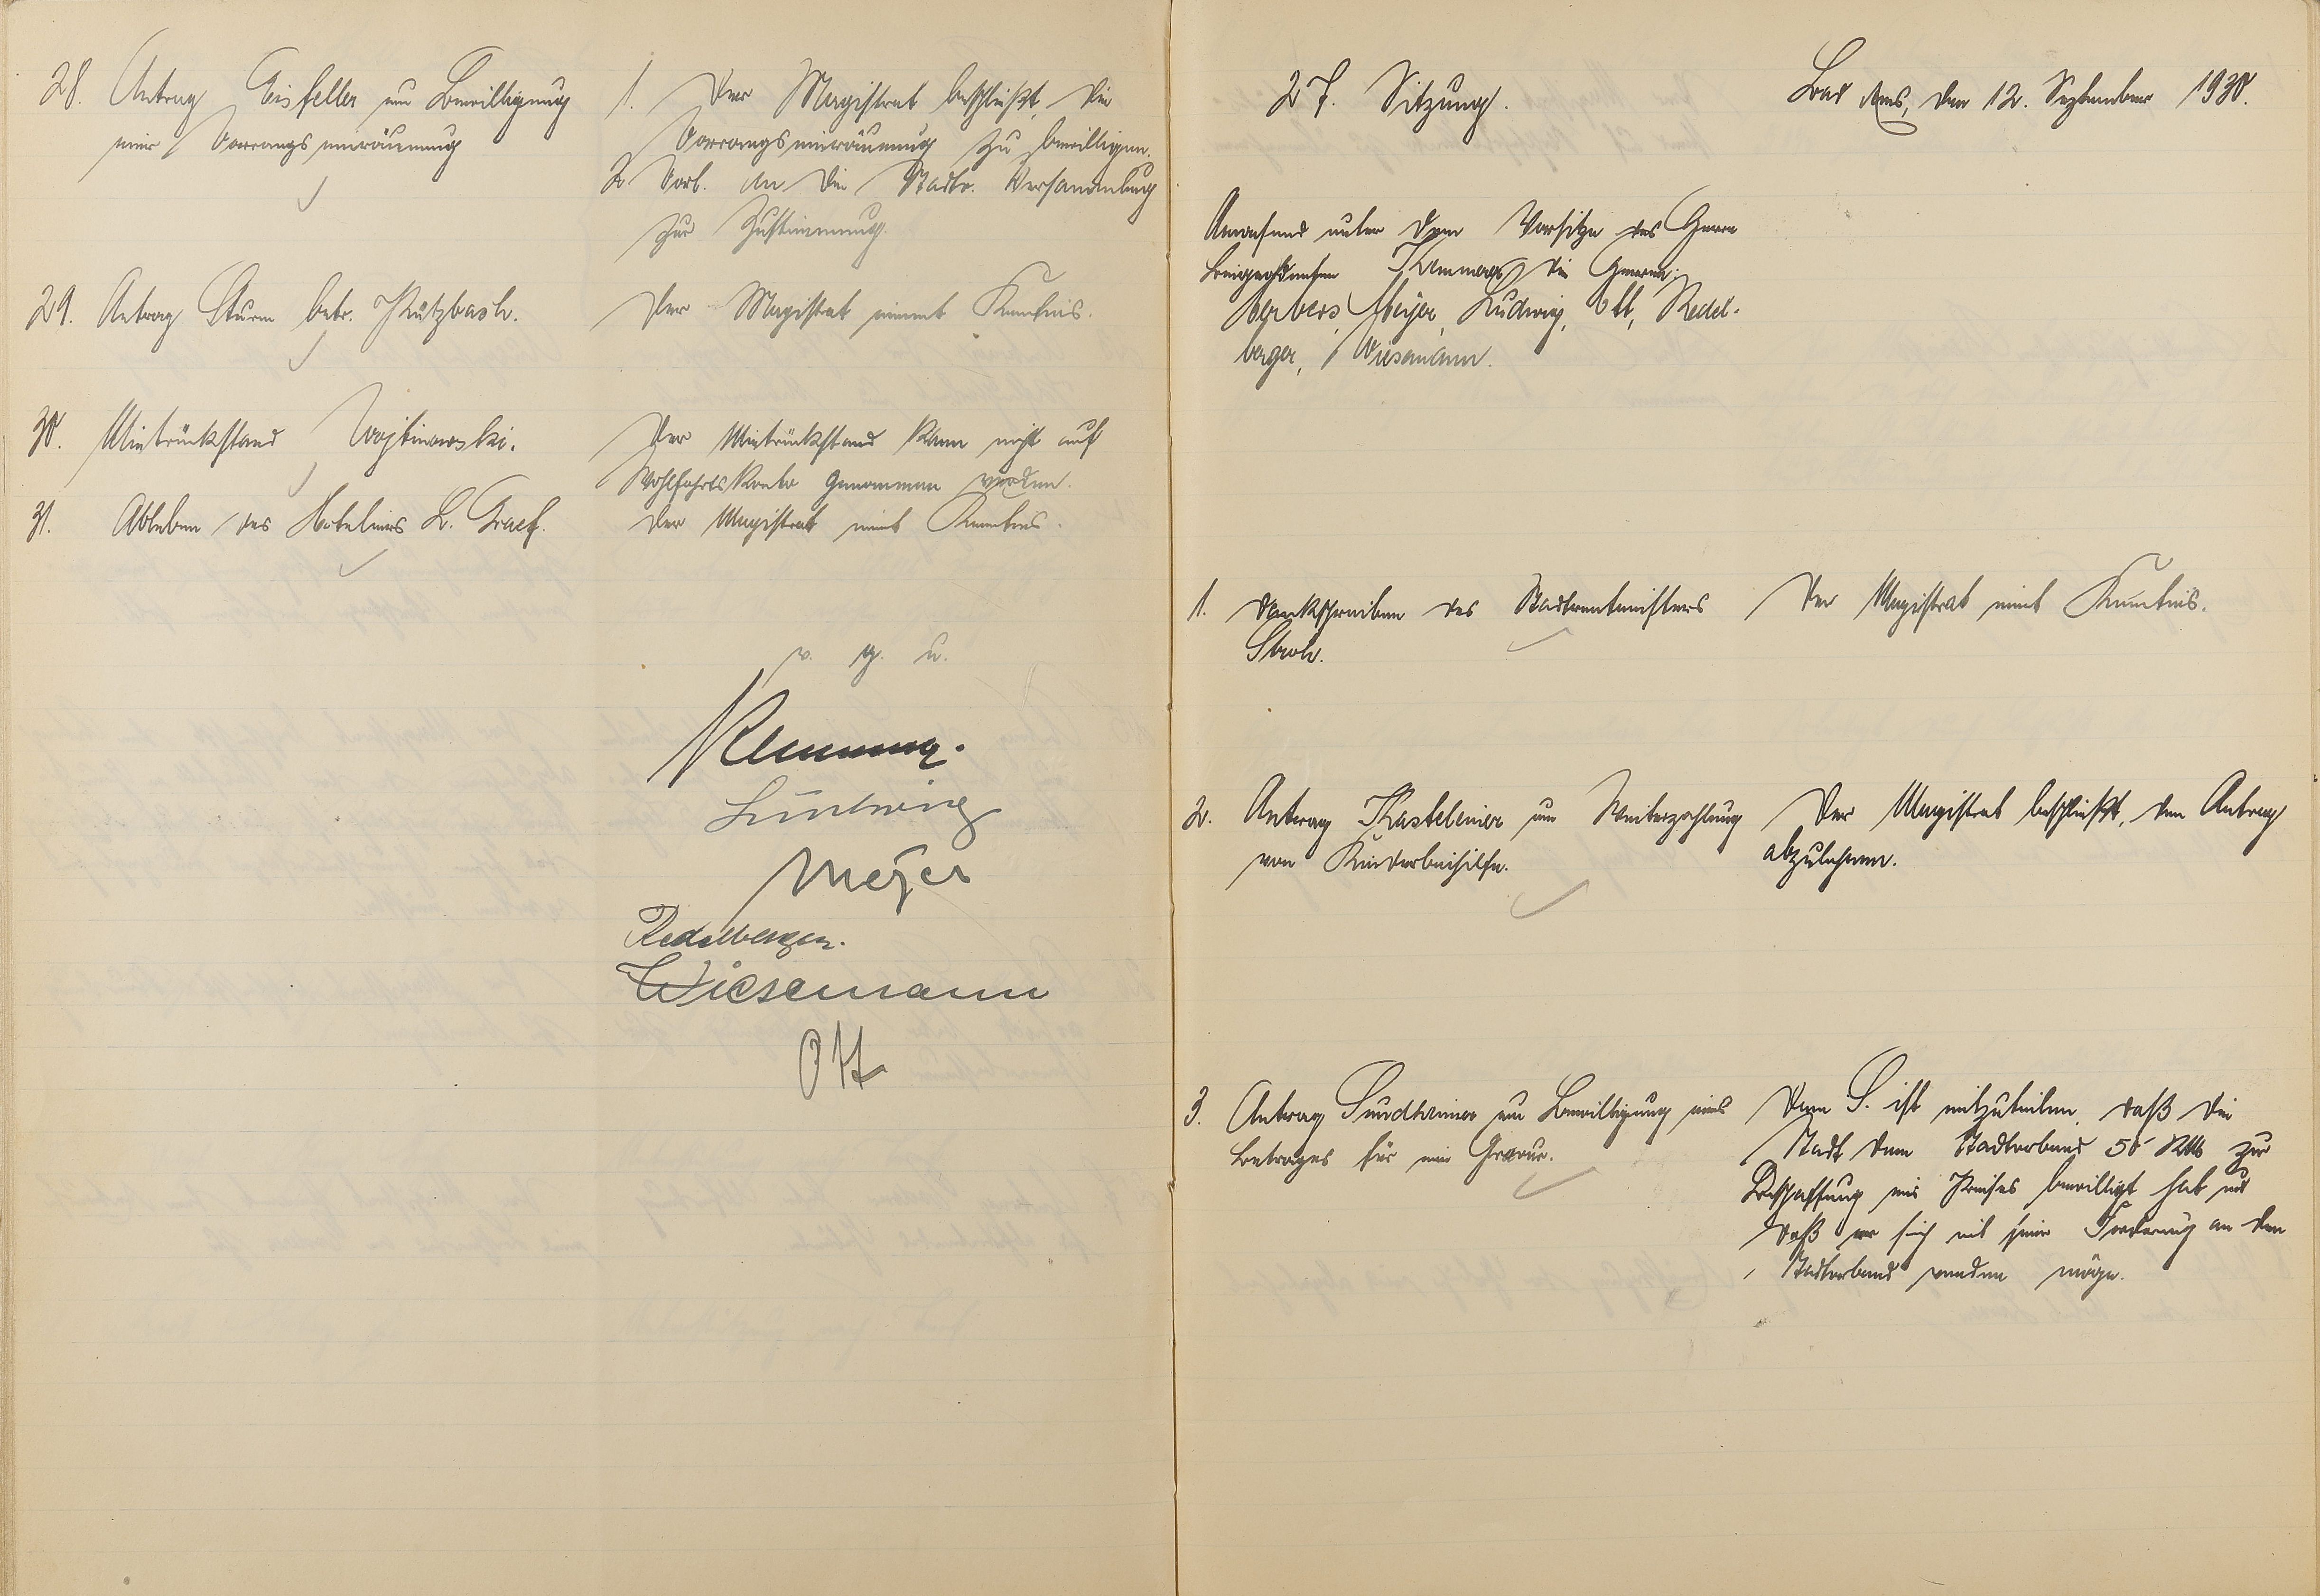 28. Antrag Eisfeller um Bewilligung
einer Vorrangseinräumung
1. Der Magistrat beschließt, die
Vorrangseinräumung zu bewilligen.
2. Vorl. an die Stadtv. Versammlung
zur Zustimmung.
29. Antrag Sturm betr.
Der Magistrat nimmt Kenntnis.
30. Mietrückstand Wojtinowski.
Der Mietrückstand kann nicht auf
Wohlfahrtskonto genommen werden.
31. Ableben des Hoteliers L. Graef.
Der Magistrat nimt Kenntnis.
v. g. u.
Ludwig
Meyer
Redelberger.
Wiesemann
Ott
27. Sitzung.
Bad Ems, den 12. September 1930.
Anwesend unter dem Vorsitze des Herrn
Beigeordneten die Herren:
Meyer, Ludwig, Ott, Redel-
berger, Wiesemann.
1. Dankschreiben des Stadtrentmeisters
Stroh.
Der Magistrat nimt Kenntnis.
2. Antrag Kasteleiner um Weiterzahlung
von Kinderbeihilfe.
Der Magistrat beschließt, den Antrag
abzulehnen.
3. Antrag Sundheimer um Bewilligung eines
Betrages für eine Gravur.
Dem S. ist mitzuteilen, daß die
Stadt dem Stadtverband 50 RM zur
Beschaffung eines Preises bewilligt hat und
daß er sich mit seiner Forderung an den
Stadtverband wenden möge.